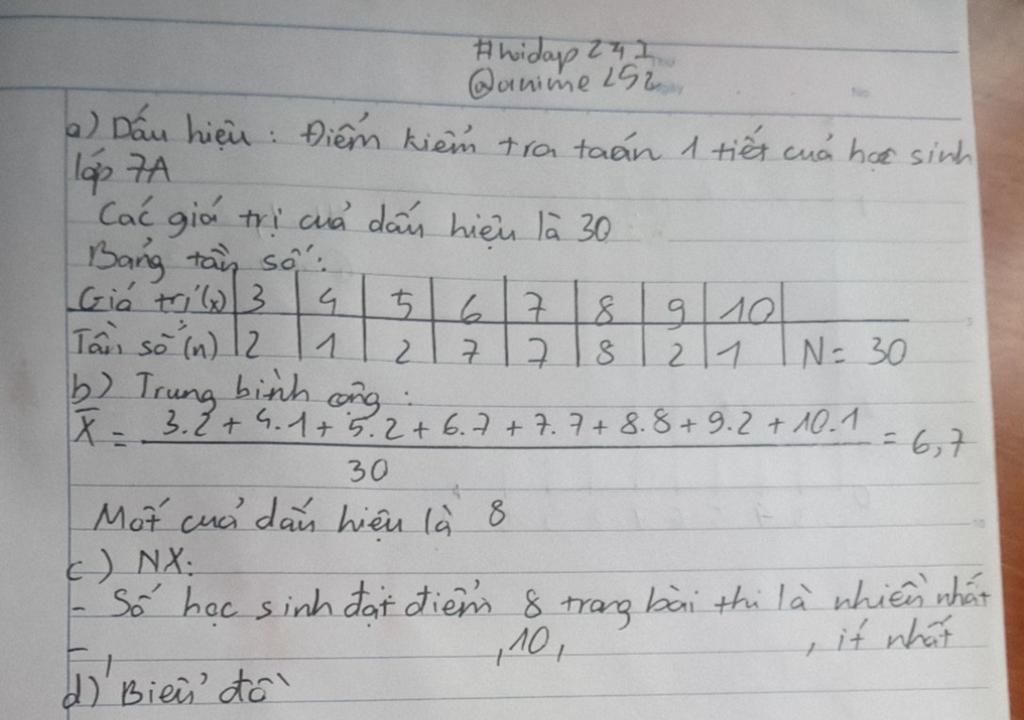 #hidap247
@anime252
a) Dấu hiệu : Điểm kiểm tra toán 1 tiết của học sinh
lớp 7A
Các giá trị của dấu hiệu là 30
Bảng tần số :
Giá trị (x) 3 4 5 6 7 8 9 10
Tần số (n) 2 1 2 7 7 8 2 1 N = 30
b) Trung bình cộng :
X̄ = 3.2 + 4.1 + 5.2 + 6.7 + 7.7 + 8.8 + 9.2 + 10.1 / 30 = 6,7
Mốt của dấu hiệu là 8
c) NX:
- Số học sinh đạt điểm 8 trong bài thi là nhiều nhất
- , ,10, , ít nhất
d) Biểu đồ